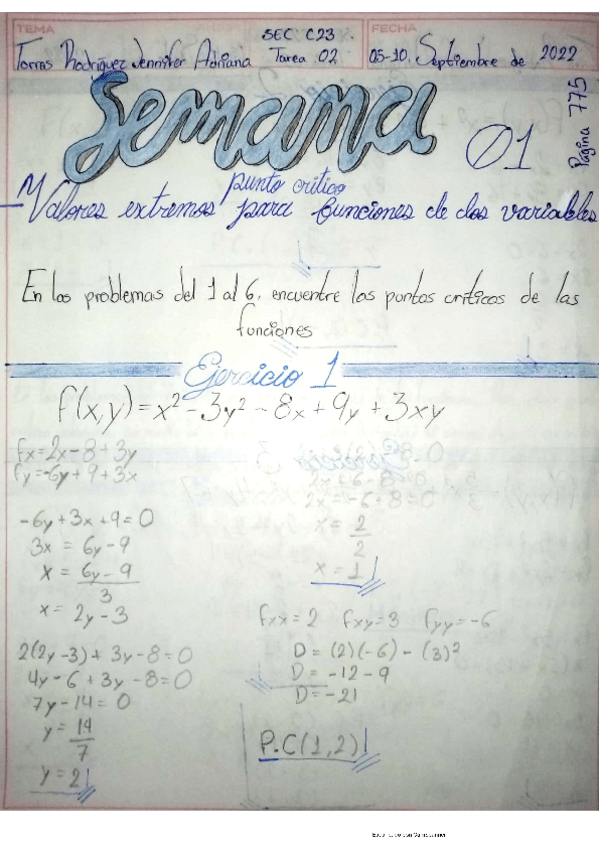 TEMA
SEC C23.
FECHA
Torres Rodriguez Jennifer Adriana Tarea 02
05-10, Septiembre de 2022
Semana 01
Página 775
punto critico
Valores extremos para funciones de dos variables
En los problemas del 1 al 6, encuentre los puntos criticos de las
funciones
Ejercicio 1
f(x,y)=x²-3y²-8x+9y+3xy
fx=2x-8+3y
fy=-6y+9+3x
-6y+3x+9=0
3x = 6y-9
x = 6y-9
3
x= 2y-3
2(2y-3)+3y-8=0
4y-6+3y-8=0
7y-14=0
y=14
7
y=2
2x+6-8=0
2x=-6+8=0
x= 2
2
x=1
fxx=2 fxy=3 fyy=-6
D=(2)(-6)-(3)²
D=-12-9
D=-21
P.C(1,2)